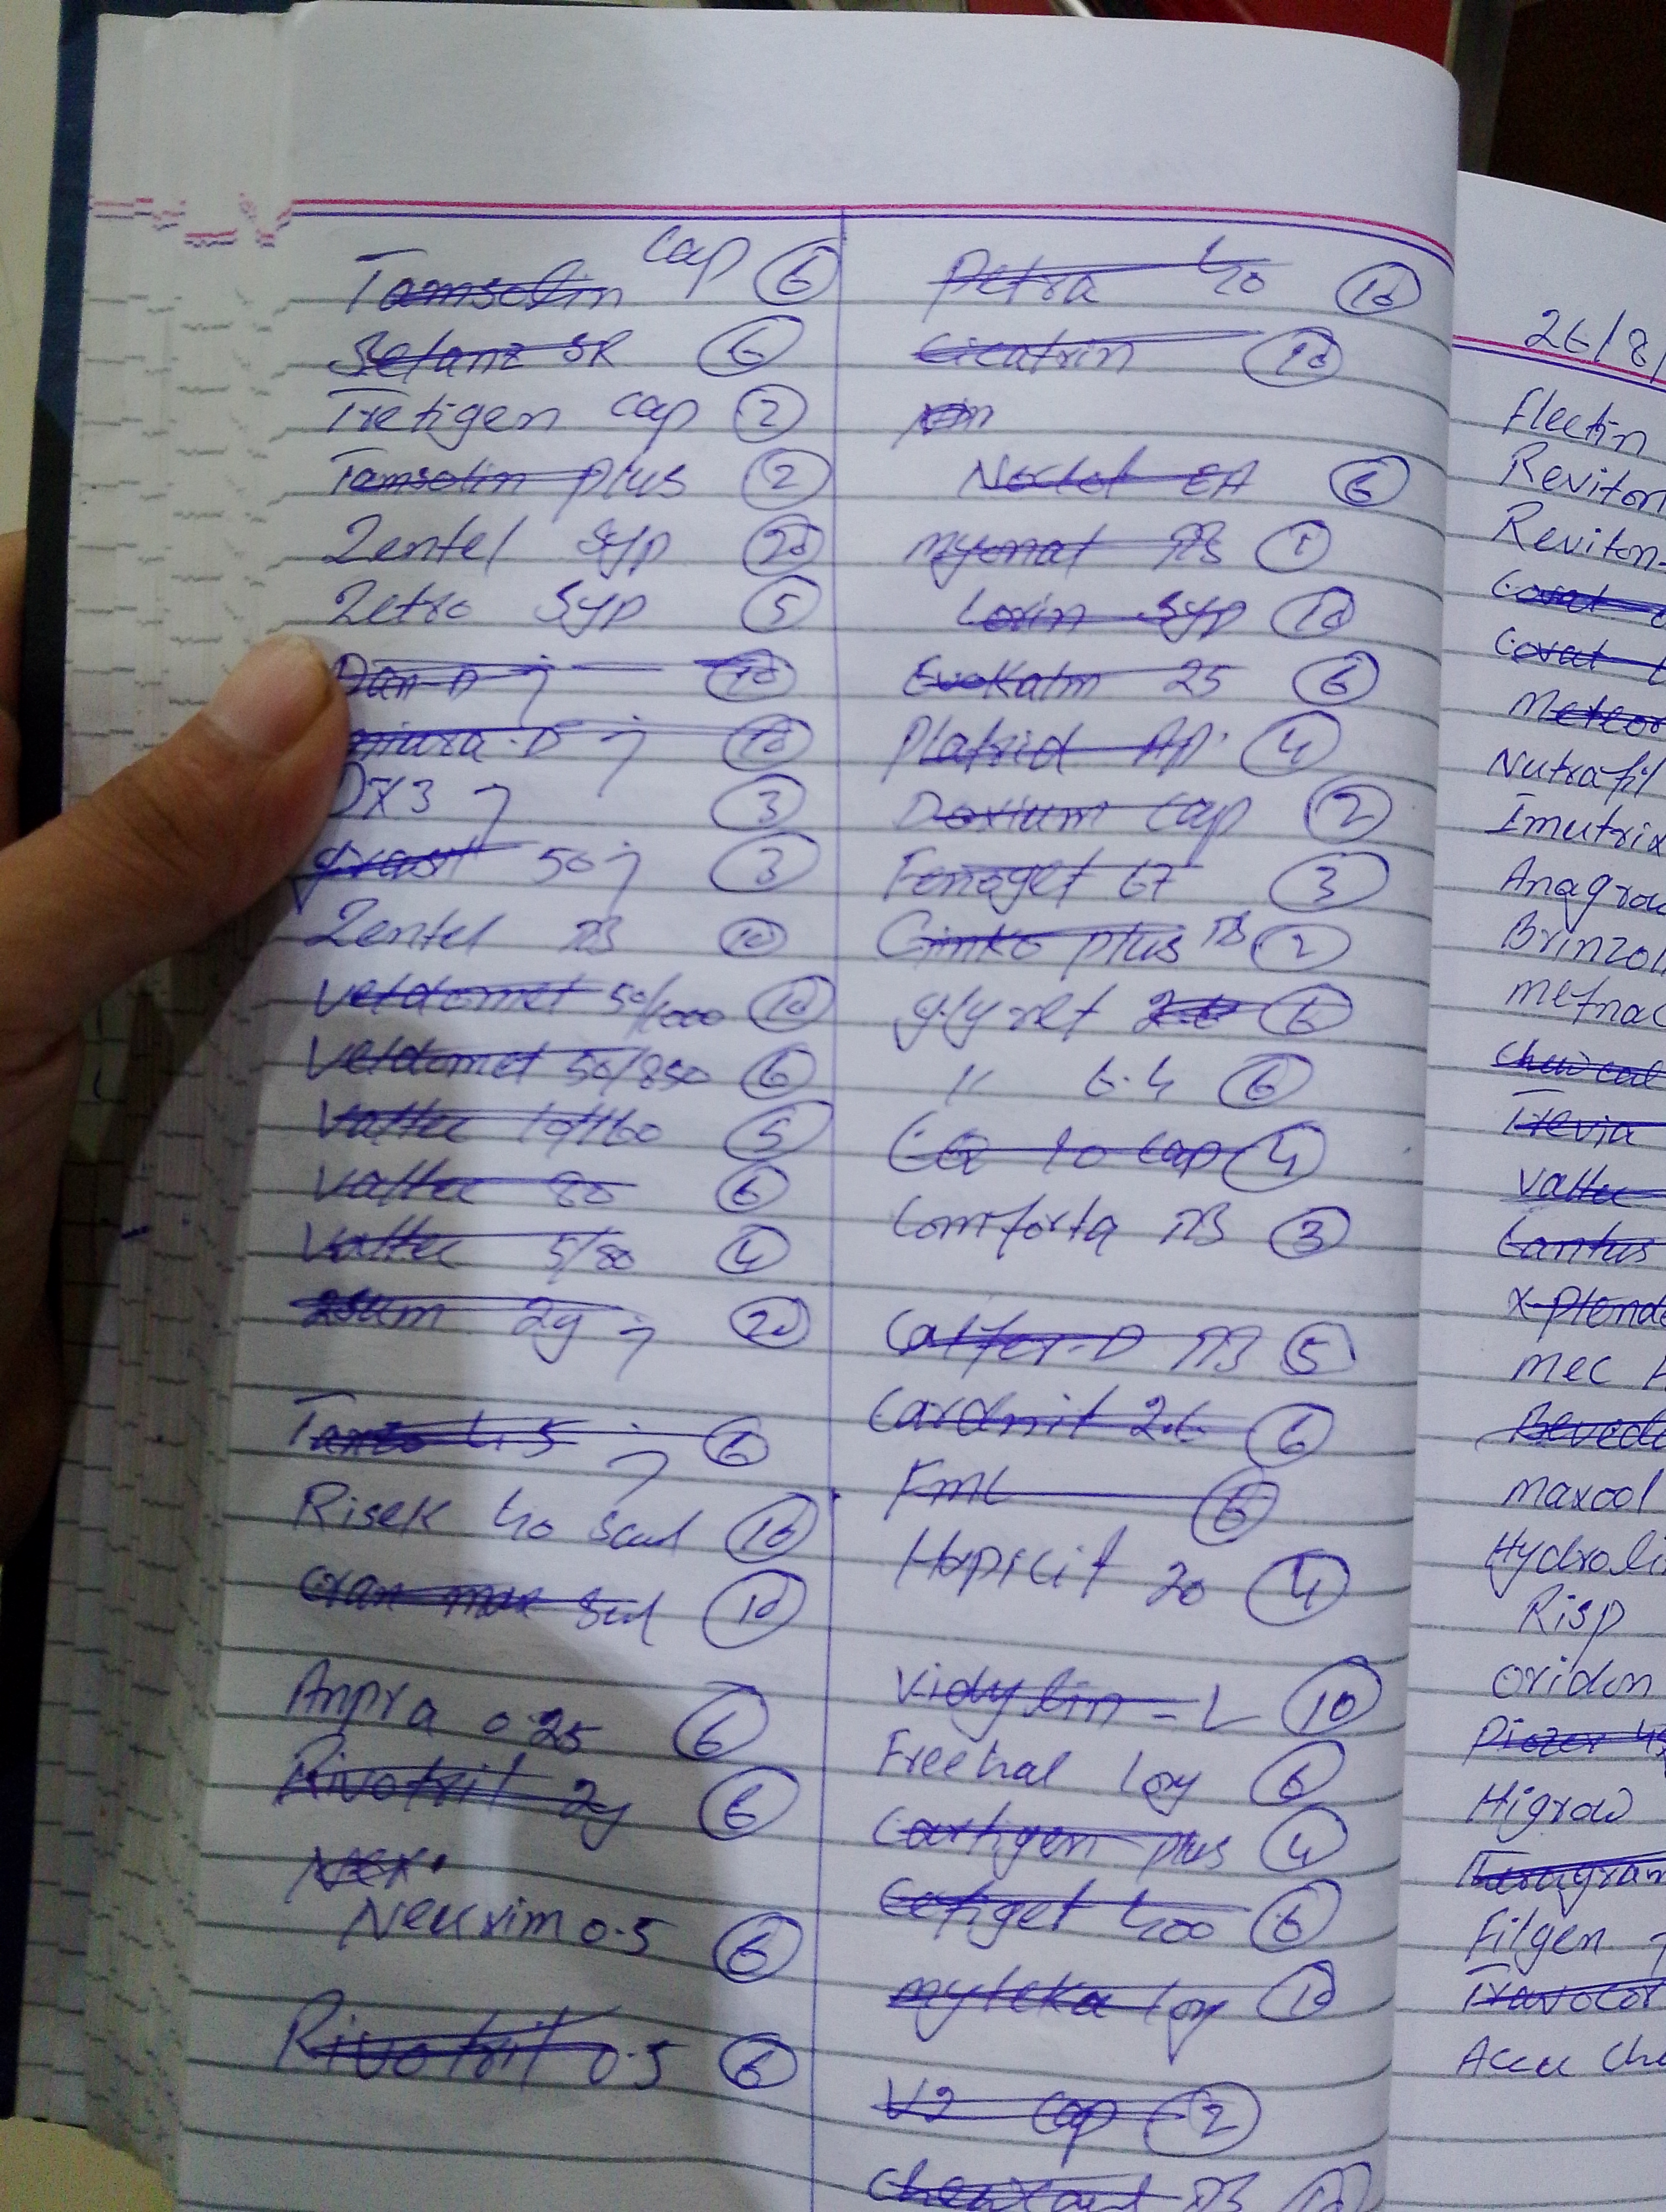 Tamsolin cap 6
Betanz SR 6
Tretigen cap 2
Tamsolin plus 2
Zentel syp 20
Zetro syp 5
Dan-D 10
10
DX3 3
50 3
Zentel TB 10
Veldomet 50/1000 10
Veldomet 50/850 6
Valtec 10/160 5
Valtec 80 6
Valtec 5/80 4
2g 20
Tanzo 4.5 6
Risek 40 10
10
Anpra 0.25 6
Rivotril 2g 6
Neurim 0.5 6
Rivotril 0.5 6
Petra 40 10
Cicatrin 10
6
myonal TB 1
Lorin syp 10
Evokalm 25 6
Platrid AP 4
Doxium cap 2
Fenoget 67 3
Ginko plus TB 2
glyret 6
" 6.4 6
10 cap 4
Comforta TB 3
Calfer-D TB 5
Cardnit 2.6 6
FML 6
Hopicit 20 4
Vidylin-L 10
Freehal 10g 6
Cartigen plus 4
Cefiget 400 6
myteka 10g 10
cap 2
TB 10
26/8/
Flectin
Reviton
Reviton-
Covat
Meteor
Nutrafil
Imutrix
Anagrow
Brinzol
Trevia
Valtec
Lantus
X-Plend
mec
maxool
Hydrolin
Risp
oridon
Piozer 45
Higrow
Theragram
Filgen
Travocor
Accu Che